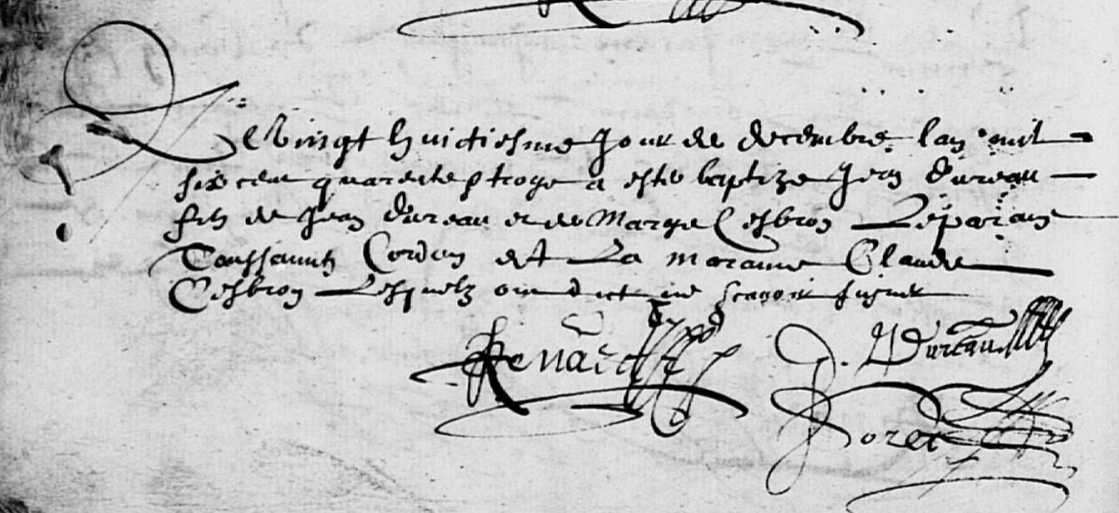 Le Vingt huictiesme Jour de decembre lan mil
six cent quarente & troys a este baptize Jean Dureau
filz de Jean Dureau et de Marye Cesbron Le parain
Toussainctz Cordon et La maraine Claude
Cesbron Lesquelz ont dict ne scavoir signer
Renard J. Dureau
Poret